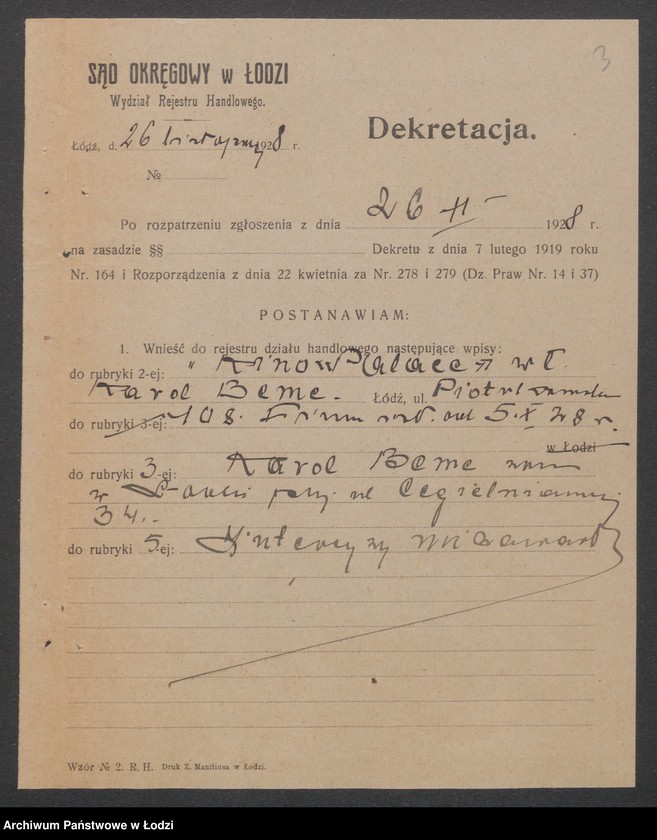 3
SĄD OKRĘGOWY w ŁODZI
Wydział Rejestru Handlowego.
Dekretacja.
Łódź, d. 26 listopada 1928 r.
№
Po rozpatrzeniu zgłoszenia z dnia 26 XI 1928 r.
na zasadzie §§ Dekretu z dnia 7 lutego 1919 roku
Nr. 164 i Rozporządzenia z dnia 22 kwietnia za Nr. 278 i 279 (Dz. Praw Nr. 14 i 37)
POSTANAWIAM:
1. Wnieść do rejestru działu handlowego następujące wpisy:
do rubryki 2-ej: "Kino Palace" wł.
Karol Beme. Łódź, ul. Piotrkowska
do rubryki 3-ej: 108. Firma istn. od 5.X 28 r.
w Łodzi
do rubryki 3-ej: Karol Beme zam
w Łodzi przy ul Cegielnianej
34.
do rubryki 5-ej:
Wzór № 2. R. H. Druk Z. Manitiusa w Łodzi.
Archiwum Państwowe w Łodzi